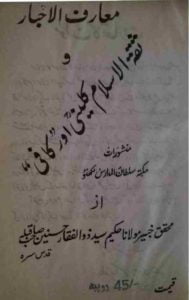 معارف الاخبار
و
ثقۃ الاسلام کلینی اور "کافی"
منشورات
مکتبۃ سلطان المدارس لکھنؤ
از
محقق خبیر مولانا حکیم سید ذوالفقار حسنین صاحب قبلہ
قدس سرہ
قیمت -/45 روپیہ